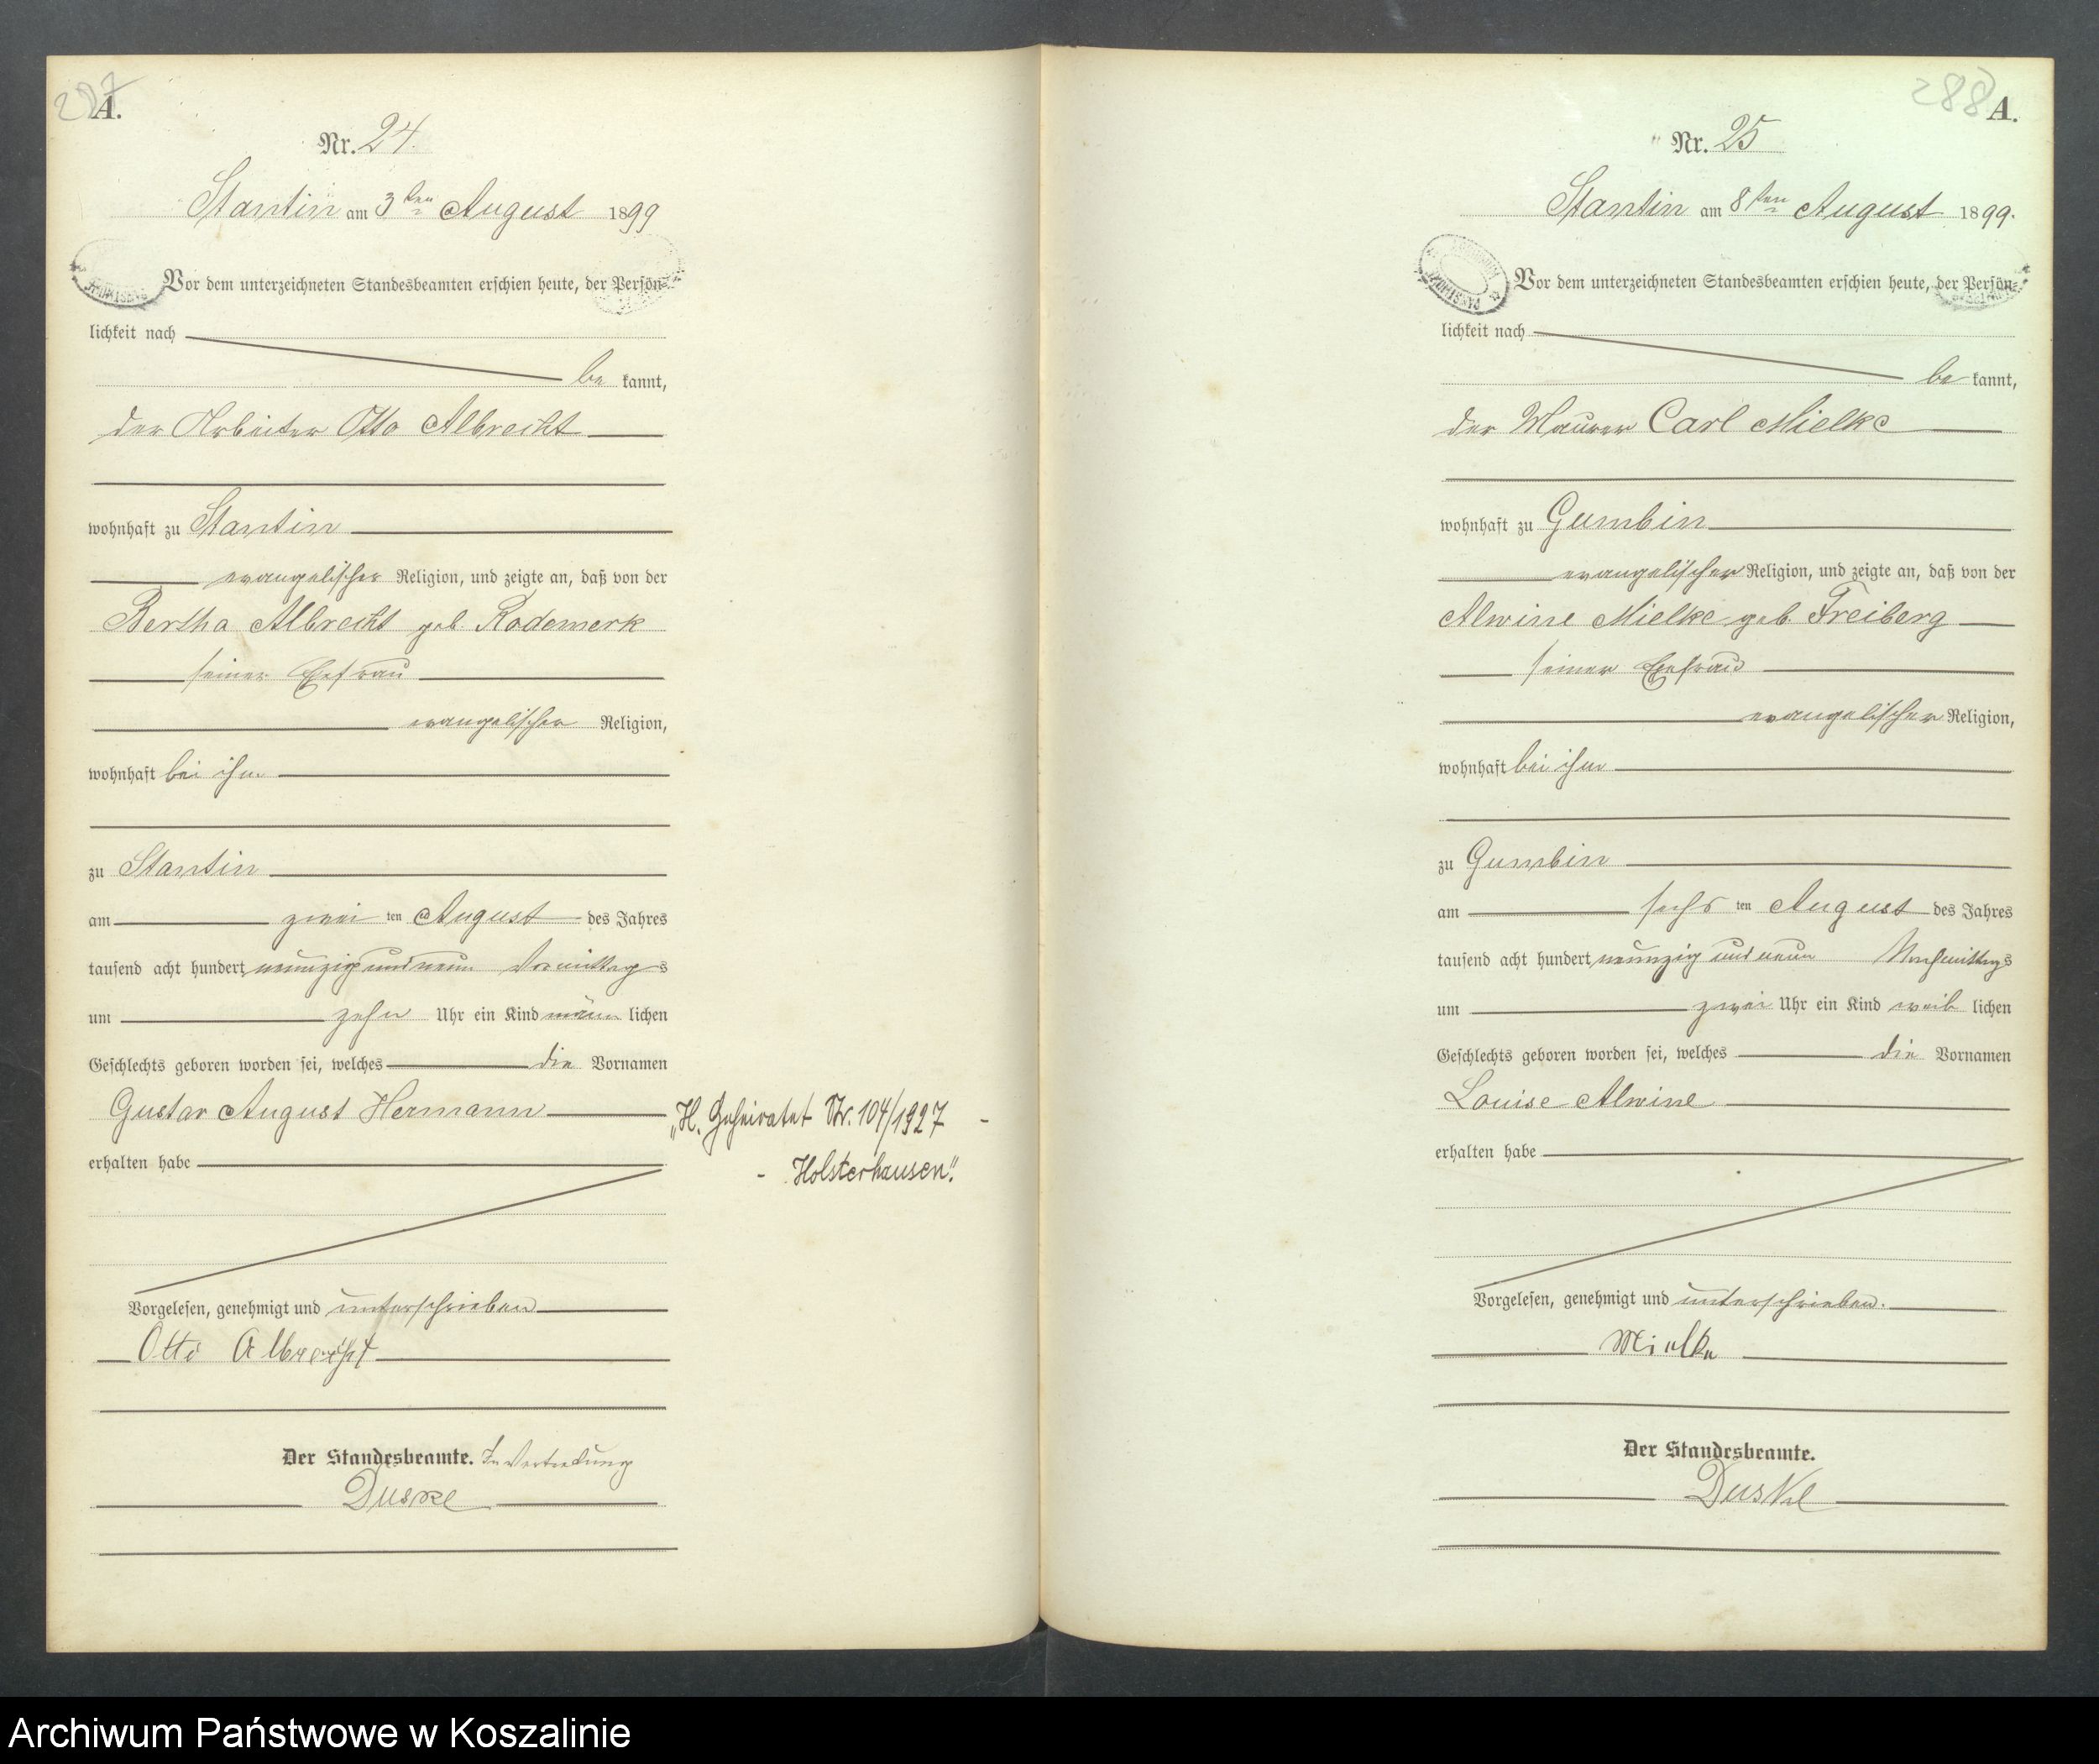 287
A.
Nr. 24.
Stantin am 3ten August 1899
Vor dem unterzeichneten Standesbeamten erschien heute, der Persön-
lichkeit nach
be kannt,
der Arbeiter Otto Albrecht
wohnhaft zu Stantin
evangelischer Religion, und zeigte an, daß von der
Bertha Albrecht geb. Rademerk
seiner Ehefrau
evangelischer Religion,
wohnhaft bei ihm
zu Stantin
am zwei ten August des Jahres
tausend acht hundert neunzig und neun Vormittags
um zehn Uhr ein Kind männ lichen
Geschlechts geboren worden sei, welches die Vornamen
Gustav August Hermann
erhalten habe
„H. Geheiratet Nr. 104/1927 -
- Holsterhausen".
Vorgelesen, genehmigt und unterschrieben
Otto Albrecht
Der Standesbeamte. In Vertretung
Duske
288
A.
Nr. 25
Stantin am 8ten August 1899.
Vor dem unterzeichneten Standesbeamten erschien heute, der Persön-
lichkeit nach
be kannt,
der Maurer Carl Mielke
wohnhaft zu Gumbin
evangelischer Religion, und zeigte an, daß von der
Alwine Mielke geb. Freiberg
seiner Ehefrau
evangelischer Religion,
wohnhaft bei ihm
zu Gumbin
am sechs ten August des Jahres
tausend acht hundert neunzig und neun Nachmittags
um zwei Uhr ein Kind weib lichen
Geschlechts geboren worden sei, welches die Vornamen
Louise Alwine
erhalten habe
Vorgelesen, genehmigt und unterschrieben.
Mielke
Der Standesbeamte.
Duske
Archiwum Państwowe w Koszalinie